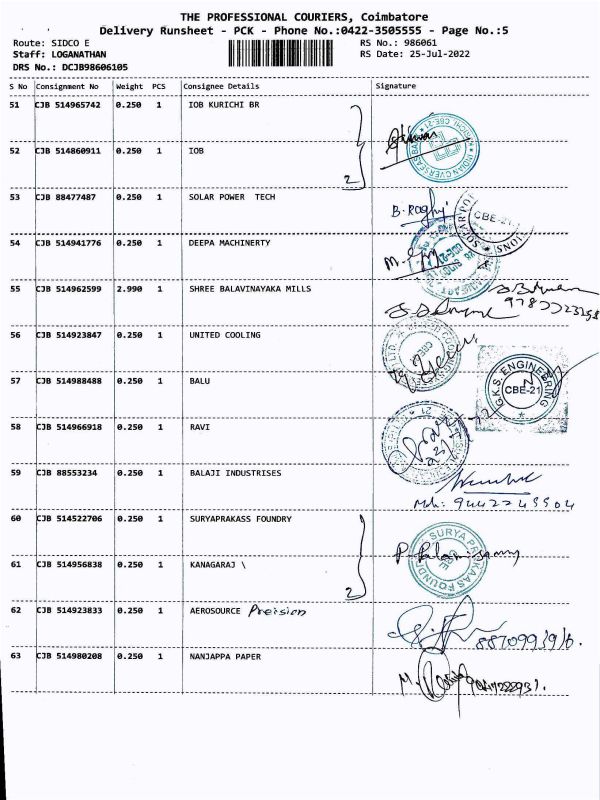 THE PROFESSIONAL COURIERS, Coimbatore
Delivery Runsheet - PCK - Phone No.:0422-3505555 - Page No.:5
Route: SIDCO E
RS No.: 986061
Staff: LOGANATHAN
RS Date: 25-Jul-2022
DRS No.: DCJB98606105
S No Consignment No Weight PCS Consignee Details Signature
51 CJB 514965742 0.250 1 IOB KURICHI BR
52 CJB 514860911 0.250 1 IOB
2
53 CJB 88477487 0.250 1 SOLAR POWER TECH
B. Roghj
CBE-21
54 CJB 514941776 0.250 1 DEEPA MACHINERTY
55 CJB 514962599 2.990 1 SHREE BALAVINAYAKA MILLS
56 CJB 514923847 0.250 1 UNITED COOLING
57 CJB 514988488 0.250 1 BALU
G.K.S. ENGINEERING
CBE-21
58 CJB 514966918 0.250 1 RAVI
59 CJB 88553234 0.250 1 BALAJI INDUSTRISES
60 CJB 514522706 0.250 1 SURYAPRAKASS FOUNDRY
SURYA PRAKAAS FOUNDRY
61 CJB 514956838 0.250 1 KANAGARAJ \
2
62 CJB 514923833 0.250 1 AEROSOURCE Precision
63 CJB 514980208 0.250 1 NANJAPPA PAPER